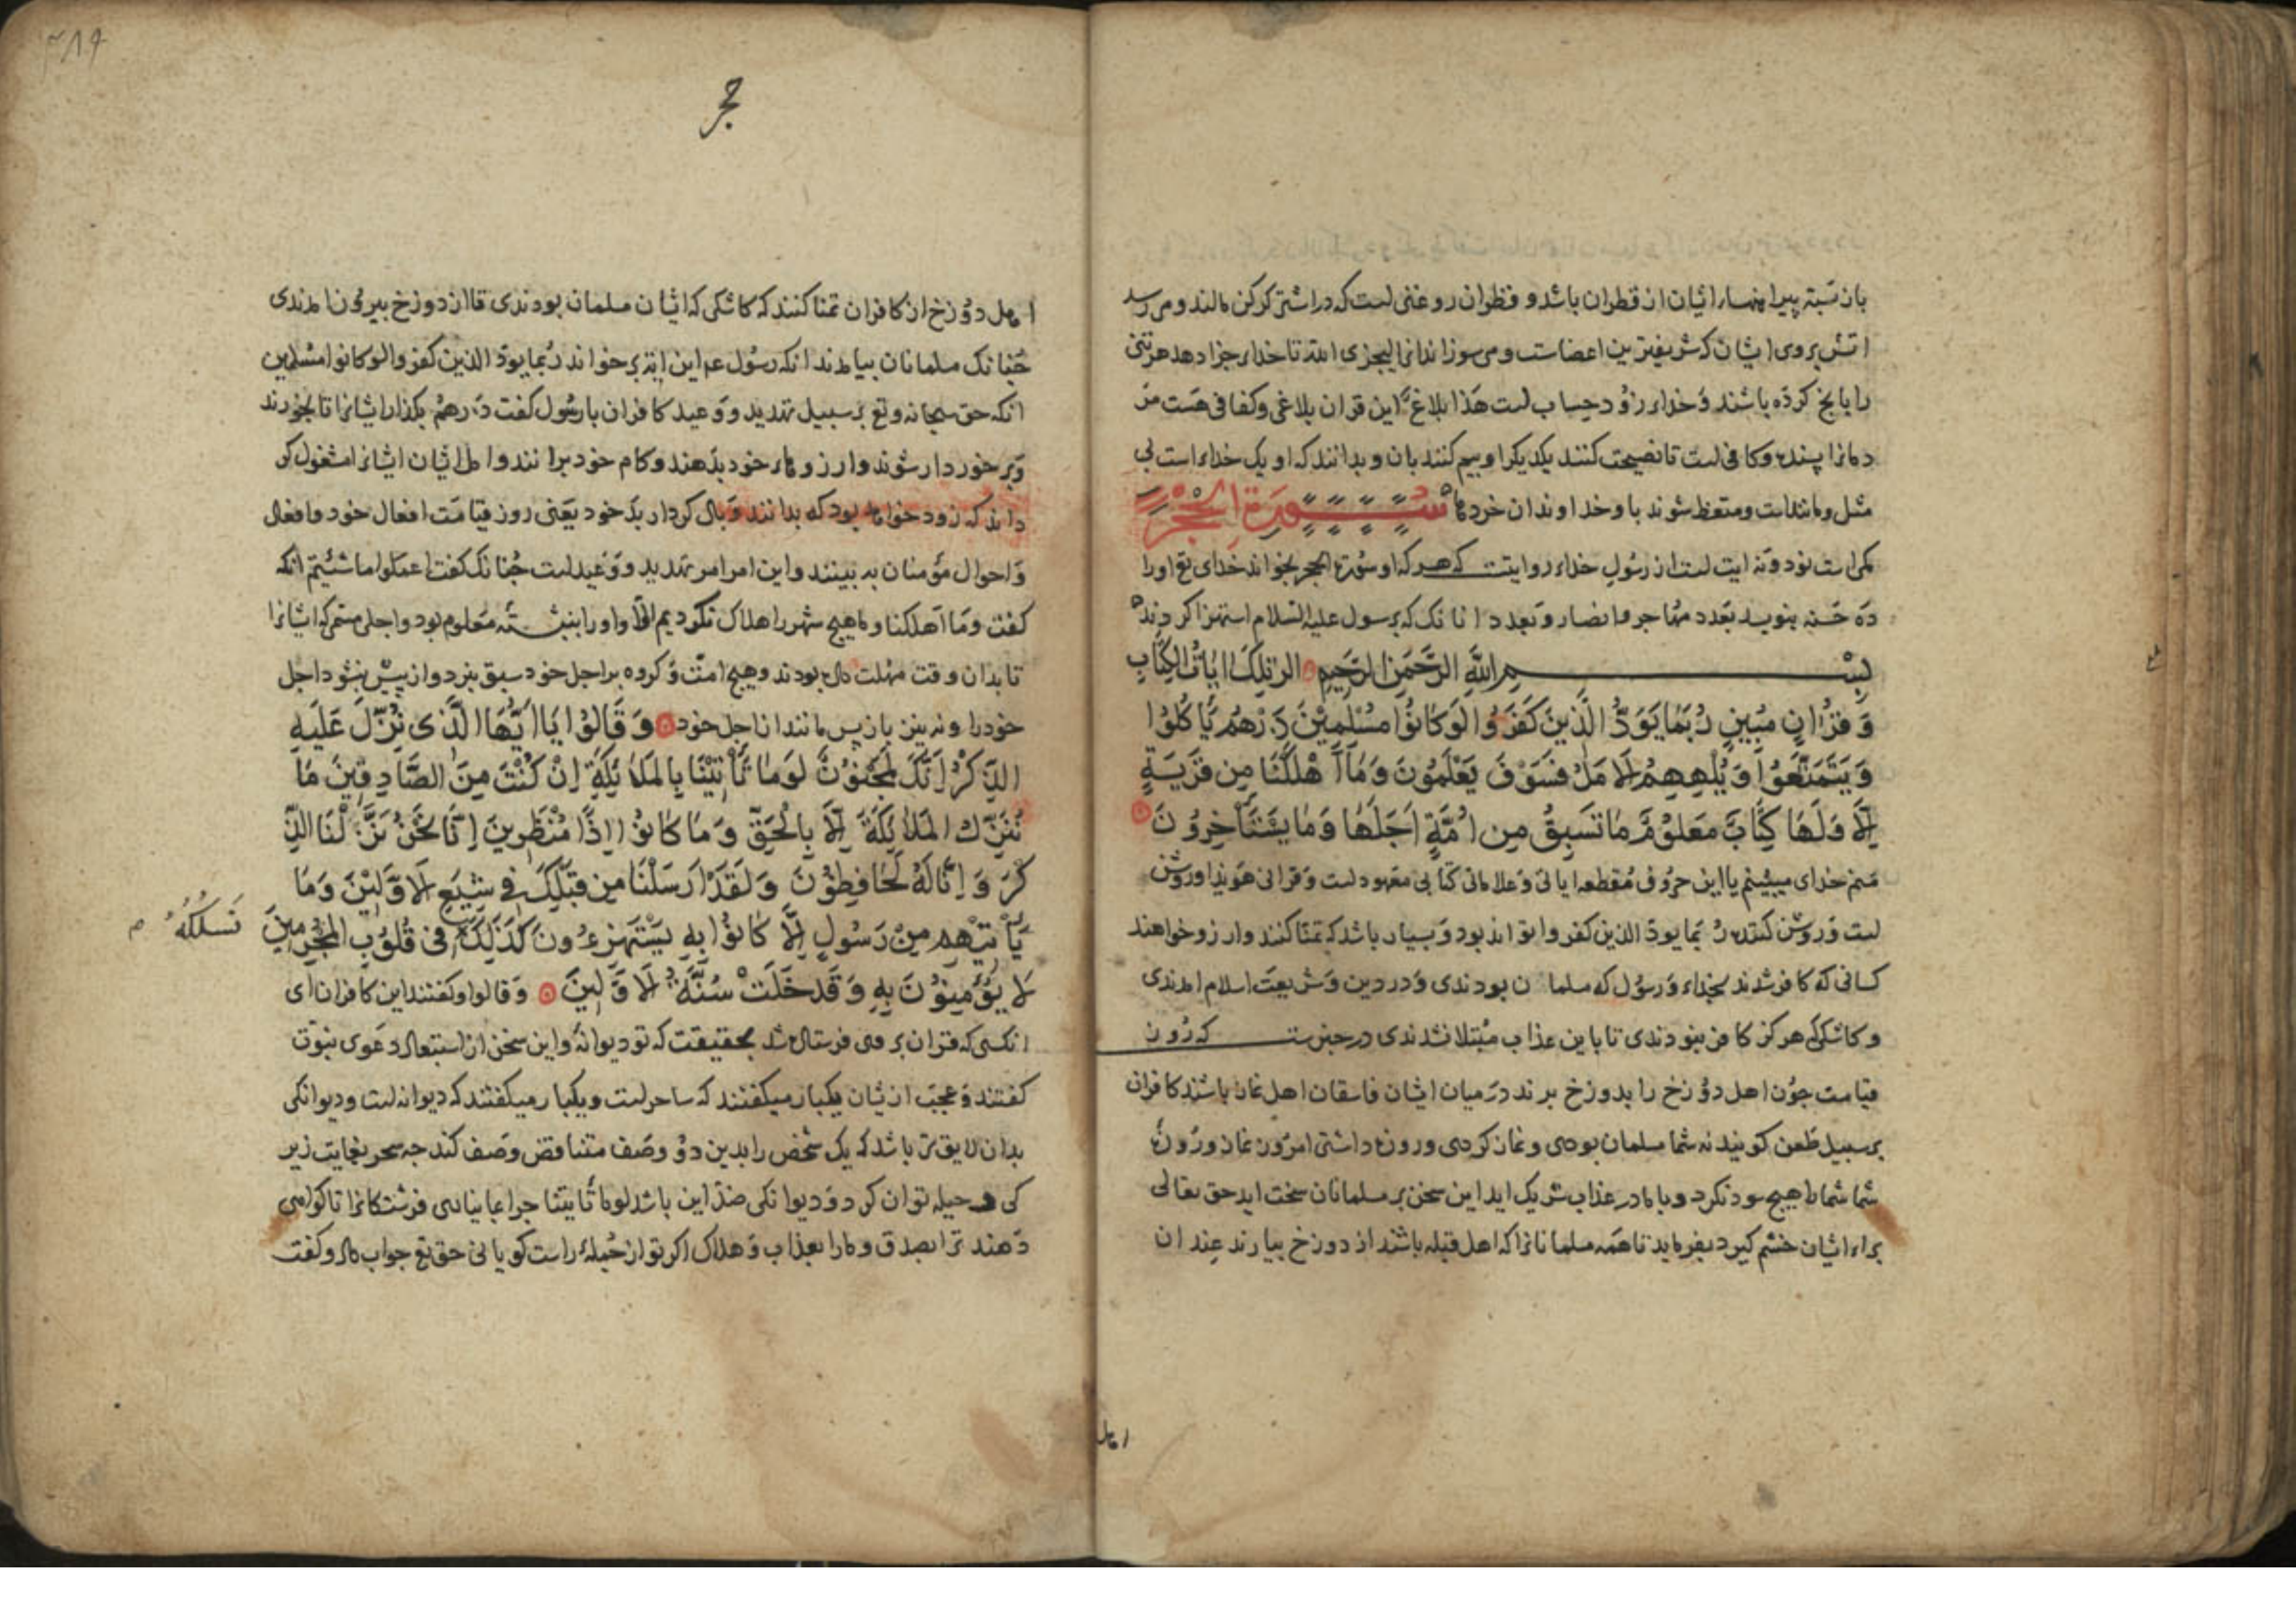 باز بسته پیراهنهاء ایشان از قطران باشد و قطران روغنی است که در اشتر کرکن مالند و می رسد
اتش بروی ایشان که شریفترین اعضاست و می سوزاند انرا لیجزی الله تا خداء جزا دهد هر تنی
را بانج کرده باشند و خداء زود حساب است هذا بلاغ این قران بلاغی و کفافی هست مر
دمانرا پسنده و کافی است تا نصیحت کنند یکدیکر او بیم کنند بان و بدانند که او یک خداء است بی
مثل و مانند است و متعظ شوند با و خداوندان خردها سورة الحجر
مکی است نود و نه ایت است از رسول خداء روایت که هر که او سورة الحجر بخواند خدای تع او را
ده حسنه بنویسد بعدد مهاجر و انصار و بعدد انانک که برسول علیه السلام استهزا کردند
بسم الله الرحمن الرحیم الر تلک ایات الکتاب
وَقُرْانٍ مُبِينٍ رُبَمَا يَوَدُّ الَّذِينَ كَفَرُوا لَوْ كَانُوا مُسْلِمِيْنَ ذَرْهُمْ يَأْكُلُوا
وَيَتَمَتَّعُوا وَيُلْهِهِمُ الْاَمَلُ فَسَوْفَ يَعْلَمُونَ وَمَا اَهْلَكْنَا مِن قَرْيَةٍ
اِلَّا وَلَهَا كِتَابٌ مَعْلُوْمٌ مَا تَسْبِقُ مِن اُمَّةٍ اَجَلَهَا وَمَا يَسْتَأْخِرُوْنَ
منم خدای میبینم یا این حروف مقطعه ایاتی و علاماتی کتابی معهود است و قرانی هویدا و روشن
است و روشن کننده ربما یود الذین کفروا بود و بسیار باشد که تمنا کنند و ارزو خواهند
کسانی که کافر شدند بخداء و رسول که مسلمان بودندی و در دین و شریعت اسلام امدندی
و کاشکی هرکز کافر نبودندی تا باین عذاب مبتلا نشدندی در خبرست که روز
قیامت چون اهل دوزخ را بدوزخ برند در میان ایشان فاسقان اهل نماز باشند کافران
برسبیل طعن کویند نه شما مسلمان بودی و نماز کردی و روزه داشتی امروز نماز و روزه
شما شما را هیچ سود نکرد و با ما در عذاب شریک اید این سخن بر مسلمانان سخت اید حق تعالی
براء ایشان خشم کیرد بفرماید تا همه مسلمانانرا که اهل قبله باشند از دوزخ بیارند عند ان
اهل
حجر
اهل دوزخ از کافران تمنا کنند که کاشکی که ایشان مسلمان بودندی تا از دوزخ بیرون امدندی
چنانک مسلمانان بیامدند انکه رسول عم این ایة برخواند ربما یود الذین کفروا لو کانوا مسلمین
انکه حق سبحانه و تع برسبیل تهدید و وعید کافران با رسول کفت ذرهم بکذار ایشانرا تا بخورند
و برخوردار شوند و ارزوهاء خود بدهند و کام خود برانند و امل ایشان ایشانرا مشغول کر
داند که زود خواهد بود که بدانند وبال کردار بد خود یعنی روز قیامت افعال خود و افعال
و احوال مؤمنان به بینند و این امر امر تهدید و وعید است چنانک کفت اعملوا ما شئتم انکه
کفت و ما اهلکنا و ما هیچ شهر را هلاک نکردیم الا و او را نبشته معلوم بود و اجلی مسمی که ایشانرا
تا بدان وقت مهلت داده بودند و هیچ امت و کروه بر اجل خود سبق نبرد و از پیش نشود اجل
خود را و نه نیز باز پس مانند از اجل خود وَقَالُوا يَا اَيُّهَا الَّذِى نُزِّلَ عَلَيْهِ
الذِّكْرُ اِنَّكَ لَمَجْنُوْنٌ لَوْمَا تَأْتِيْنَا بِالْمَلائِكَةِ اِنْ كُنْتَ مِنَ الصَّادِقِينَ مَا
نُنَزِّلُ الْمَلائِكَةَ اِلَّا بِالْحَقِّ وَمَا كَانُوْا اِذًا مُنْظَرِينَ اِنَّا نَحْنُ نَزَّلْنَا الذِّ
كْرَ وَاِنَّا لَهُ لَحَافِظُوْنَ وَلَقَدْ اَرْسَلْنَا مِن قَبْلِكَ فِى شِيَعِ الْاَوَّلِيْنَ وَمَا
يَأْتِيْهِمْ مِنْ رَسُولٍ اِلَّا كَانُوْا بِهِ يَسْتَهْزِءُونَ كَذَلِكَ فِى قُلُوْبِ الْمُجْرِمِيْنَ نَسْلُكُهُ
لَا يُؤْمِنُوْنَ بِهِ وَقَدْ خَلَتْ سُنَّةُ الْاَوَّلِيْنَ و قالوا و کفتند این کافران ای
انکسی که قران بر وی فرستاده شد بحقیقت که تو دیوانه و این سخن از استبعاد دعوی نبوت
کفتند و عجب ازیشان یکبار میکفتند که ساحر است و یکبار میکفتند که دیوانه است و دیوانکی
بدان لایق تر باشد که یک شخص را بدین دو وصف متناقض وصف کند چه سحر بغایت زیر
کی و حیله توان کرد و دیوانکی ضد این باشد لوما تأتینا چرا بما نیاری فرشتکانرا تا کواهی
دهند ترا بصدق و ما را بعذاب و هلاک اکر تو از جملهٔ راست کویانی حق تع جواب داد و کفت